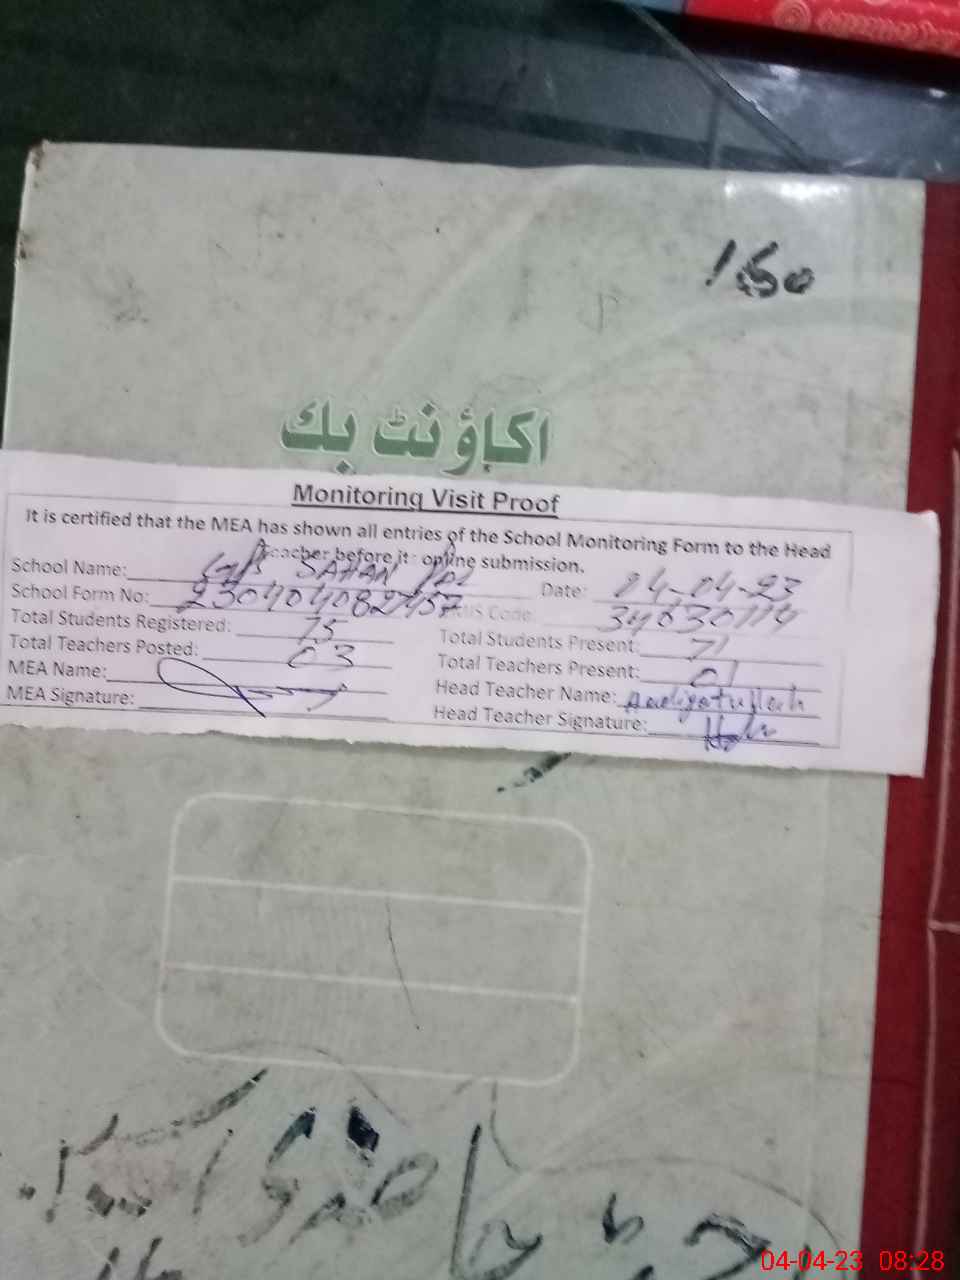 150
اکاؤنٹ بک
Monitoring Visit Proof
It is certified that the MEA has shown all entries of the School Monitoring Form to the Head
Teacher before it's online submission.
School Name: SAHAN Date: 04-04-23
School Form No: 230404082457 EMIS Code: 34630114
Total Students Registered: 75 Total Students Present: 71
Total Teachers Posted: 03 Total Teachers Present: 01
MEA Name: Head Teacher Name:
MEA Signature: Head Teacher Signature:
04-04-23 08:28